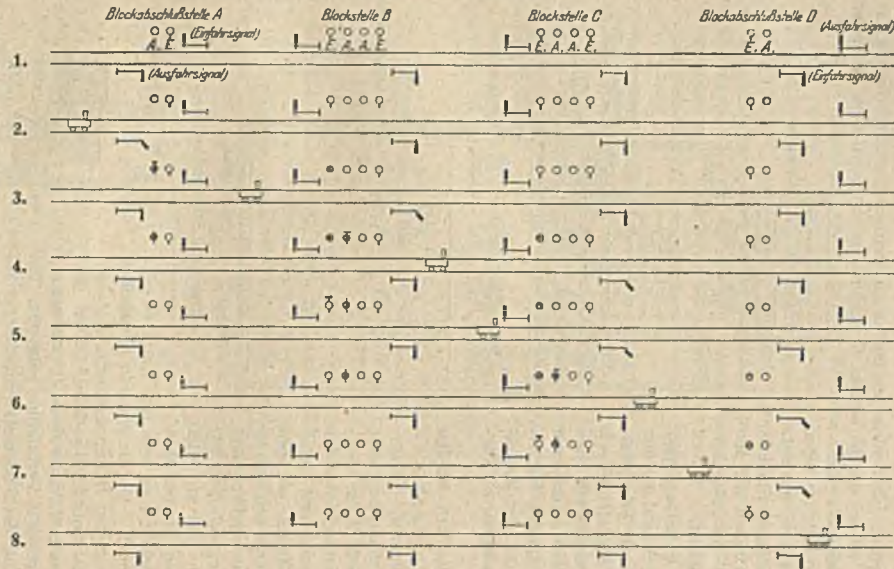 Blockabschlußstelle A
Blockstelle B
Blockstelle C
Blockabschlußstelle D
(Einfahrsignal)
(Ausfahrsignal)
A. E.
E. A. A. E.
E. A. A. E.
E. A.
1.
(Ausfahrsignal)
(Einfahrsignal)
2.
3.
4.
5.
6.
7.
8.